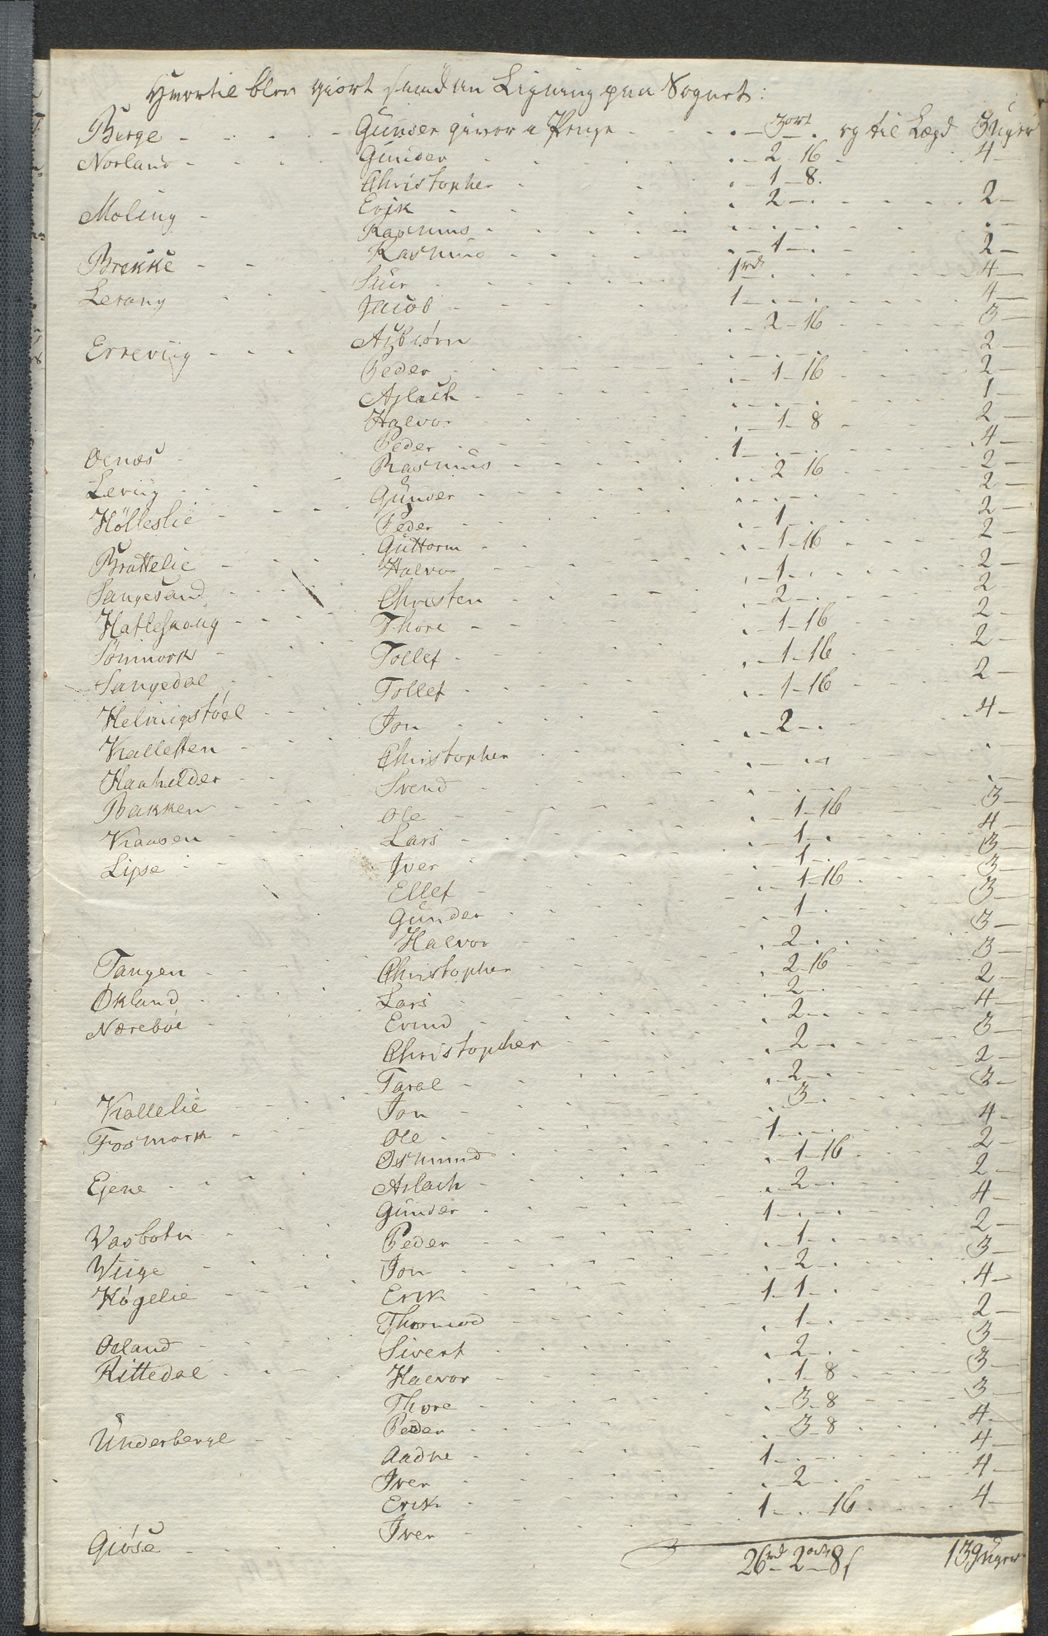 Hvortil blev giort saadan Ligning paa Sognet:
Berge - Gunder giver a Penge - 3 ort - og til Lægd 3 Uger
Norland - Gunder - 2 - 16 - 4 -
Christopher - 1 - 8.
Moling - Erik - 2 - 2 -
Rasmus
Rasmus - 1 - 2 -
Brekke - 1 rd - 4 -
Lerang - Jacob - 1 - 4 -
Erreviig - Asbiørn - 2 - 16 - 3 -
Peder - 2 -
Aslach - 1 - 16 - 2 -
Halvor - 1 -
Peder - 1 - 8 - 2 -
Oenæs - Rasmus - 1 - 4 -
Leviig - Gunder - 2 16 - 2 -
Hölleslie - Peder - 2 -
Guttorm - 1 - 2 -
Brattelie - Halvor - 1 - 16 - 2 -
Sangesand - Christen - 1 - 2 -
Hatleskoug - Thore - 2 - 2 -
Sønmork - Tollef - 1 - 16 - 2 -
Sangedal - Tollef - 1 - 16 - 2 -
Helmigstøel - Jon - 1 - 16 - 2 -
Kallesten - Christopher - 2 - 4 -
Haahelder - Svend
Bakken - Ole
Kaasen - Lars - 1 - 16 - 3 -
Lipse - Iver - 1 - 4 -
Ellef - 1 - 3 -
Gunder - 1 - 16 - 3 -
Halvor - 1 - 3 -
Tangen - Christopher - 2 - 3 -
Økland - Lars - 2 - 16 - 3 -
Nærebøe - Evind - 2 - 2 -
Christopher - 2 - 4 -
Taral - 2 - 3 -
Kallelie - Jon - 2 - 2 -
Fosmork - Ole - 3 - 3 -
Osmund - 1 - 4 -
Eiene - Aslach - 1 - 16 - 2 -
Gunder - 2 - 2 -
Vasbotn - Peder - 1 - 4 -
Viige - Jon - 1 - 2 -
Høgelie - Erik - 2 - 3 -
Thormod - 1 - 1 - 4 -
Osland - Sivert - 1 - 2 -
Rittedal - Halvor - 2 - 3 -
Thore - 1 - 8 - 3 -
Underberge - Peder - 3 - 8 - 3 -
Aadne - 3 - 8 - 4 -
Iver - 1 - 4 -
Erik - 2 - 4 -
Giøse - Iver - 1 - 16 - 4 -
26 rd - 2 ort - 8 s 139 Uger